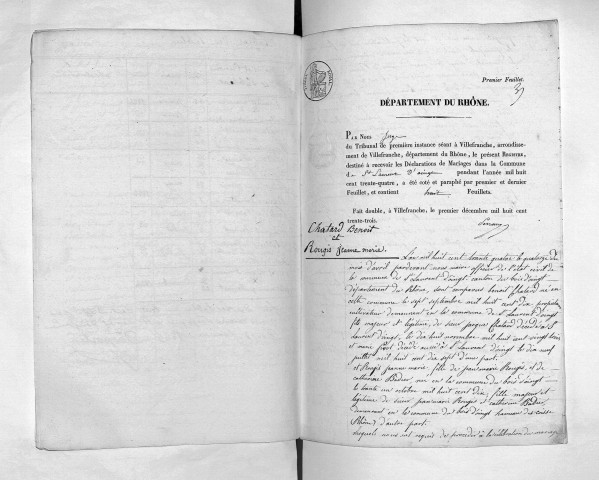 Premier Feuillet.
DÉPARTEMENT DU RHÔNE.
PAR Nous Juge
du Tribunal de première instance séant à Villefranche, arrondisse-
ment de Villefranche, département du Rhône, le présent REGISTRE,
destiné à recevoir les Déclarations de Mariages dans la Commune
de St Laurent d'oingt pendant l'année mil huit
cent trente-quatre, a été coté et paraphé par premier et dernier
Feuillet, et contient huit Feuillets.
Fait double, à Villefranche, le premier décembre mil huit cent
trente-trois.
Chatard Benoit
et
Rougis jeanne marie
L'an mil huit cent trente quatre le quatorze du
mois d'avril pardevant nous maire officier de l'état civil de
la commune de St Laurent d'oingt canton du bois d'oingt
département du Rhône, sont comparus benoit Chatard né en
cette commune le sept septembre mil huit cent dix propriétaire
cultivateur demeurant en la commune de St Laurent d'oingt
fils majeur et légitime de sieur jacques Chatard décédé à St
Laurent d'oingt, le dix huit novembre mil huit cent vingt trois
et marie décédée aussi à St Laurent d'oingt le dix neuf
juillet mil huit cent dix sept d'une part.
et Rougis jeanne marie, fille de Rougis, et de
catherine née en la commune du bois d'oingt
le trente un octobre mil huit cent dix, fille majeure et
légitime de sieur Rougis et catherine
demeurant en la commune du bois d'oingt
Rhône d'autre part.
lesquels nous ont requis de procéder à la célébration du mariage